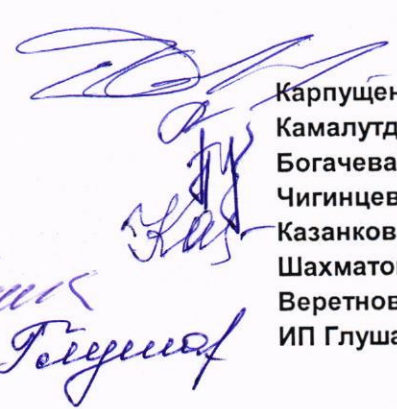 Карпущен
Камалутд
Богачева
Чигинцев
Казанков
Шахматов
Веретнов
ИП Глуша